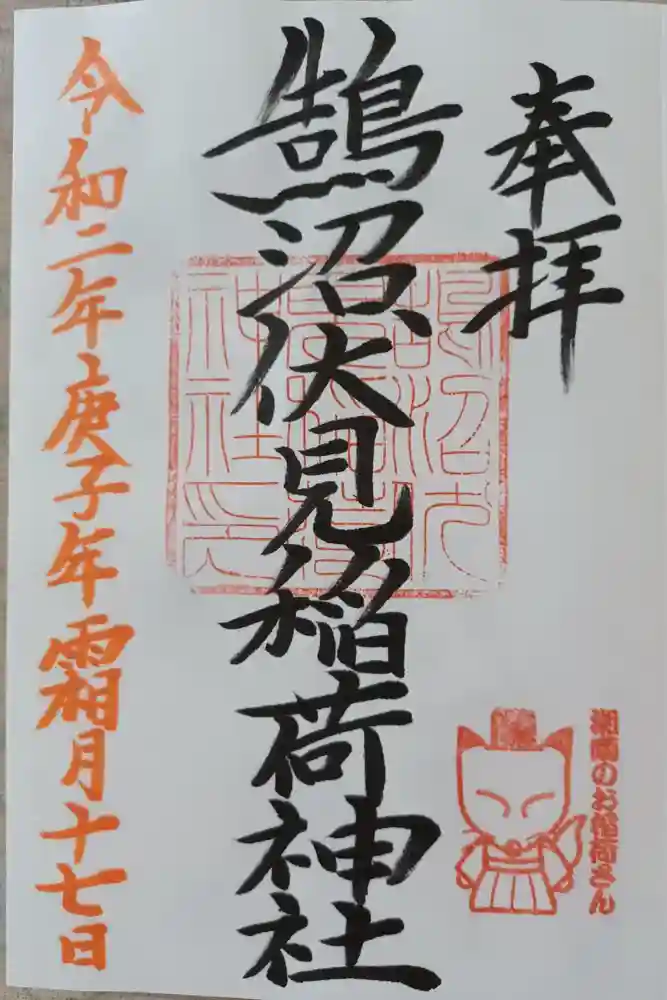 奉拝
鵠沼伏見稲荷神社
湘南のお稲荷さん
令和二年庚子年霜月十七日